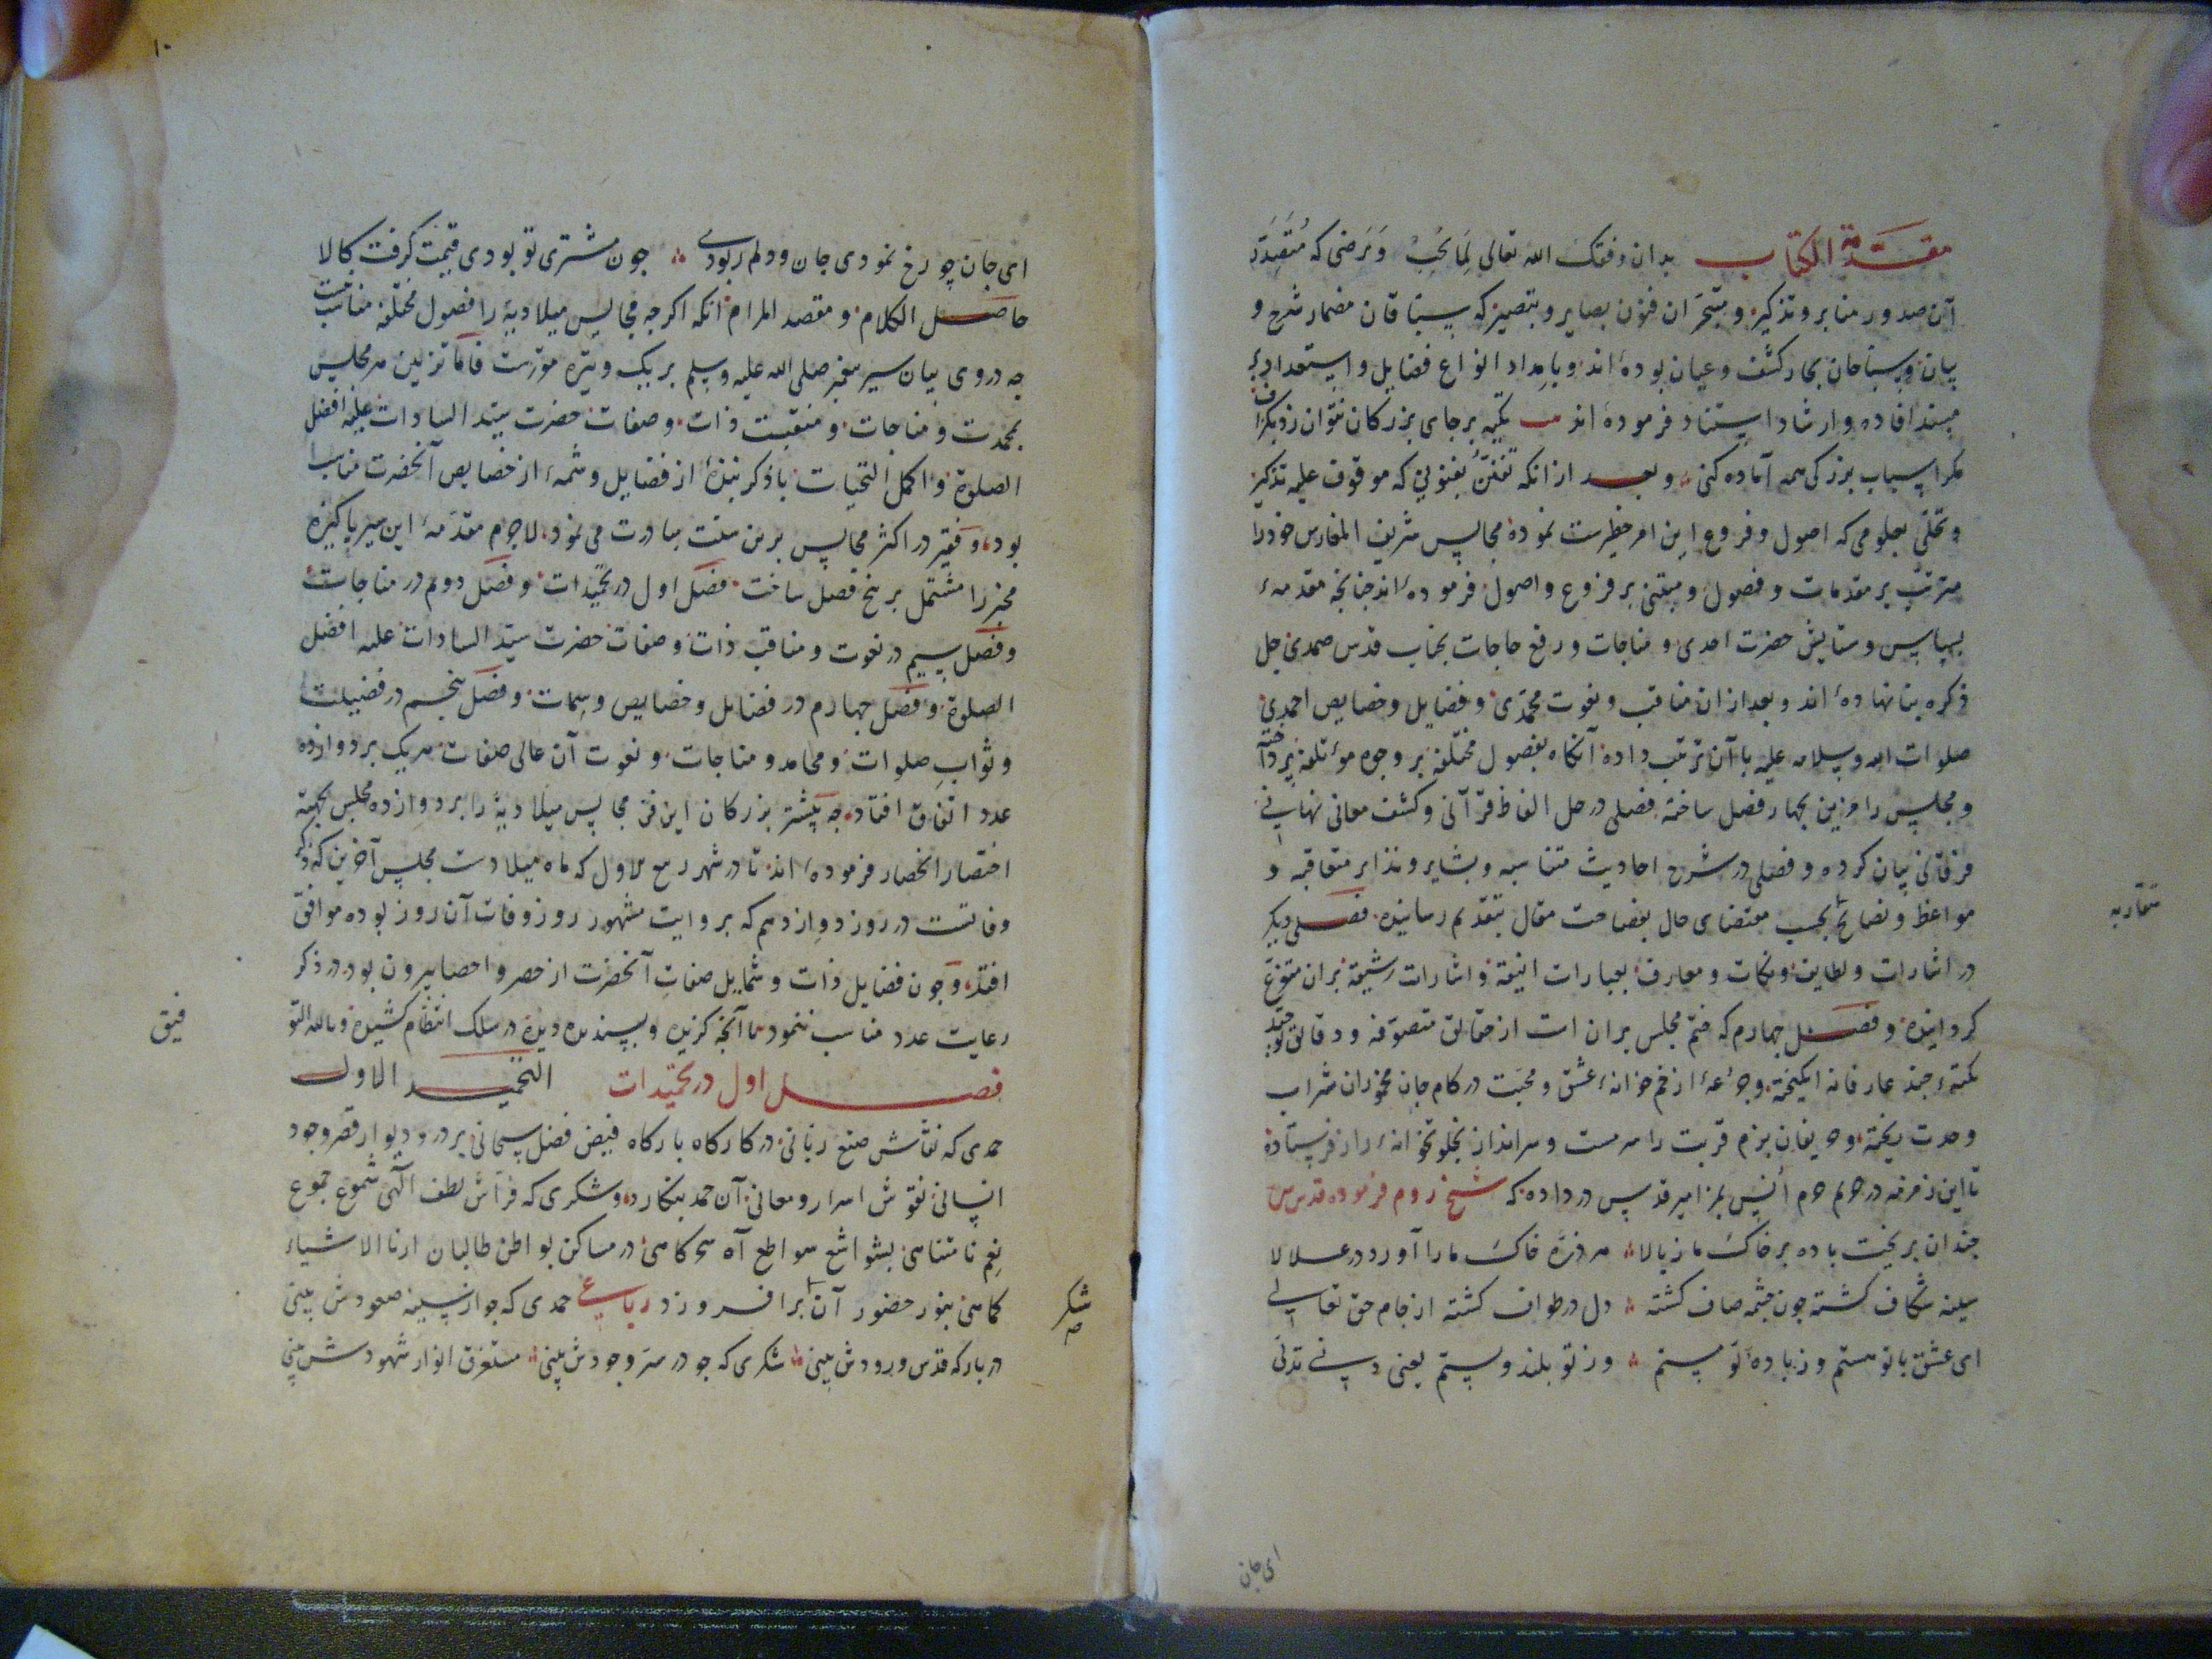 مقدمة الكتاب بدان وفقک الله تعالی لِمَا یُحِبُّ وَ یَرضی که مُتَقَیِدان
آن صدور منابر و تذکیر و متبحران فنون بصایر و تبصیر که سبّاقان مضمار شرح و
بیان و سبّاحان بحار کشف و عیان بوده‌اند و بامداد انواع فضایل و استعداد بر
مسند افاده و ارشاد استناد فرموده‌اند تکیه بر جای بزرکان نتوان زد بکزاف
مکر اسباب بزرکی همه آماده کنی و بعد از انکه تفنّن بفنونی که موقوف علیه تذکیر
و تحلّی بعلومی که اصول و فروع این امر خطیرست نموده مجالس شریف المغارس خود را
مترتب بر مقدمات و فصول و مبتنی بر فروع و اصول فرموده‌اند چنانچه مقدمهٔ
بسپاس و ستایش حضرت احدی و مناجات و رفع حاجات بجناب قدس صمدی جل
ذکره بنا نهاده‌اند و بعد از ان مناقب و نعوت محمّدی و فضایل و خصایص احمدی
صلوات الله و سلامه علیه با آن ترتیب داده آنکاه بفصول مختلفه بر وجوه مؤتلفه پرداخته
و مجلس را مزین بچهار فصل ساخته فصلی در حل الفاظ قرآنی و کشف معانی نهانی
فرقانی بیان کرده و فصلی در شرح احادیث متناسبه و بشایر و نذایر متعاقبه و
متقاربه
مواعظ و نصایح بحسب مقتضای حال بفصاحت مقال بتقدیم رسانیده فصلی دیکر
در اشارات و لطایف و نکات و معارف بعبارات انیقه و اشارات رشیقه بران متفرّع
کردانیده و فصل چهارم که ختم مجلس بران است از حقایق متصوّفه و دقایق توحید
نکتهٔ چند عارفانه انکیخته و جرعهٔ از خم خزانهٔ عشق و محبّت در کام جان مخموران شراب
وحدت ریخته و حریفان بزم قربت را سرمست و سرانداز بخلوتخانهٔ راز فرستاده
تا این زمزمه در حریم حرم اُنس بمزامیر قدس در داده که شیخ روم فرموده قدس سره
چندان بریخت باده بر خاک ما ز بالا هر ذرّهٔ خاک ما را آورد در علالا
سینه شکاف کشته چون چشمه صاف کشته دل در طواف کشته از جام حق تعالی
ای عشق با تو هستم وز بادهٔ تو مستم وز تو بلند و پستم یعنی دنی تدلّی
ای جان
۱۰
ای جان چو رخ نمودی جان و دلم ربودی چون مشتری تو بودی قیمت کرفت کالا
حاصل الکلام و مقصد المرام انکه اکرچه مجالس میلادیه را فصول مختلفه مناسبت
چه در وی بیان سیر پیغمبر صلی الله علیه و سلم بر یک وتیره مقرّرست فامّا تزیین هر مجلس
بمحمدت و مناجات و منقبت ذات و صفات حضرت سید السادات علیه افضل
الصلوة و اکمل التحیات با ذکر نبذهٔ از فضایل و شمهٔ از خصایص آنحضرت مناسب
بود و فقیر در اکثر مجالس برین سنّت مبادرت می نمود لاجرم مقدمهٔ این سیر پاکیزه
مخبر را مشتمل بر پنج فصل ساخت فصل اول در تحمیدات و فصل دوم در مناجات
و فصل سیم در نعوت و مناقب ذات و صفات حضرت سید السادات علیه افضل
الصلوة و فصل چهارم در فضایل و خصایص و سمات و فصل پنجم در فضیلت
و ثواب صلوات و محامد و مناجات و نعوت آن عالی صفات هر یک بر دوازده
عدد اتفاق افتاد چه پیشتر بزرکان این فن مجالس میلادیه را بر دوازده مجلس بجهة
اختصار انحصار فرموده‌اند تا در شهر ربیع الاول که ماه میلادست مجلس آخرین که ذکر
وفاتست در روز دوازدهم که بروایت مشهور روز وفات آن روز بوده موافق
افتد و چون فضایل ذات و شمایل صفات آنحضرت از حصر و احصا بیرون بود در ذکر
رعایت عدد مناسب ننمود ما آنچه کزیده و پسندیده دیده در سلک انتظام کشیده و بالله التو
فیق
فصل اول در تحمیدات التحمید الاول
حمدی که نقّاش صنع ربّانی در کارکاه بارکاه فیض فضل سبحانی بر در و دیوار قصر وجود
انسانی نقوش اسرار و معانی آن حمد بنکارد و شکری که فرّاش لطف الهی شموع جموع
نعم نامتناهی بشواشع سواطع آه سحرکاهی در مساکن بواطن طالبان ارنا الاشیاء
کماهی بنور حضور آن برافروزد رباعی حمدی که چو از سینه صعودش بینی
شکر
صح
در بارکه قدس ورودش بینی شکری که چو در سرّ وجودش بینی مستغرق انوار شهودش بینی